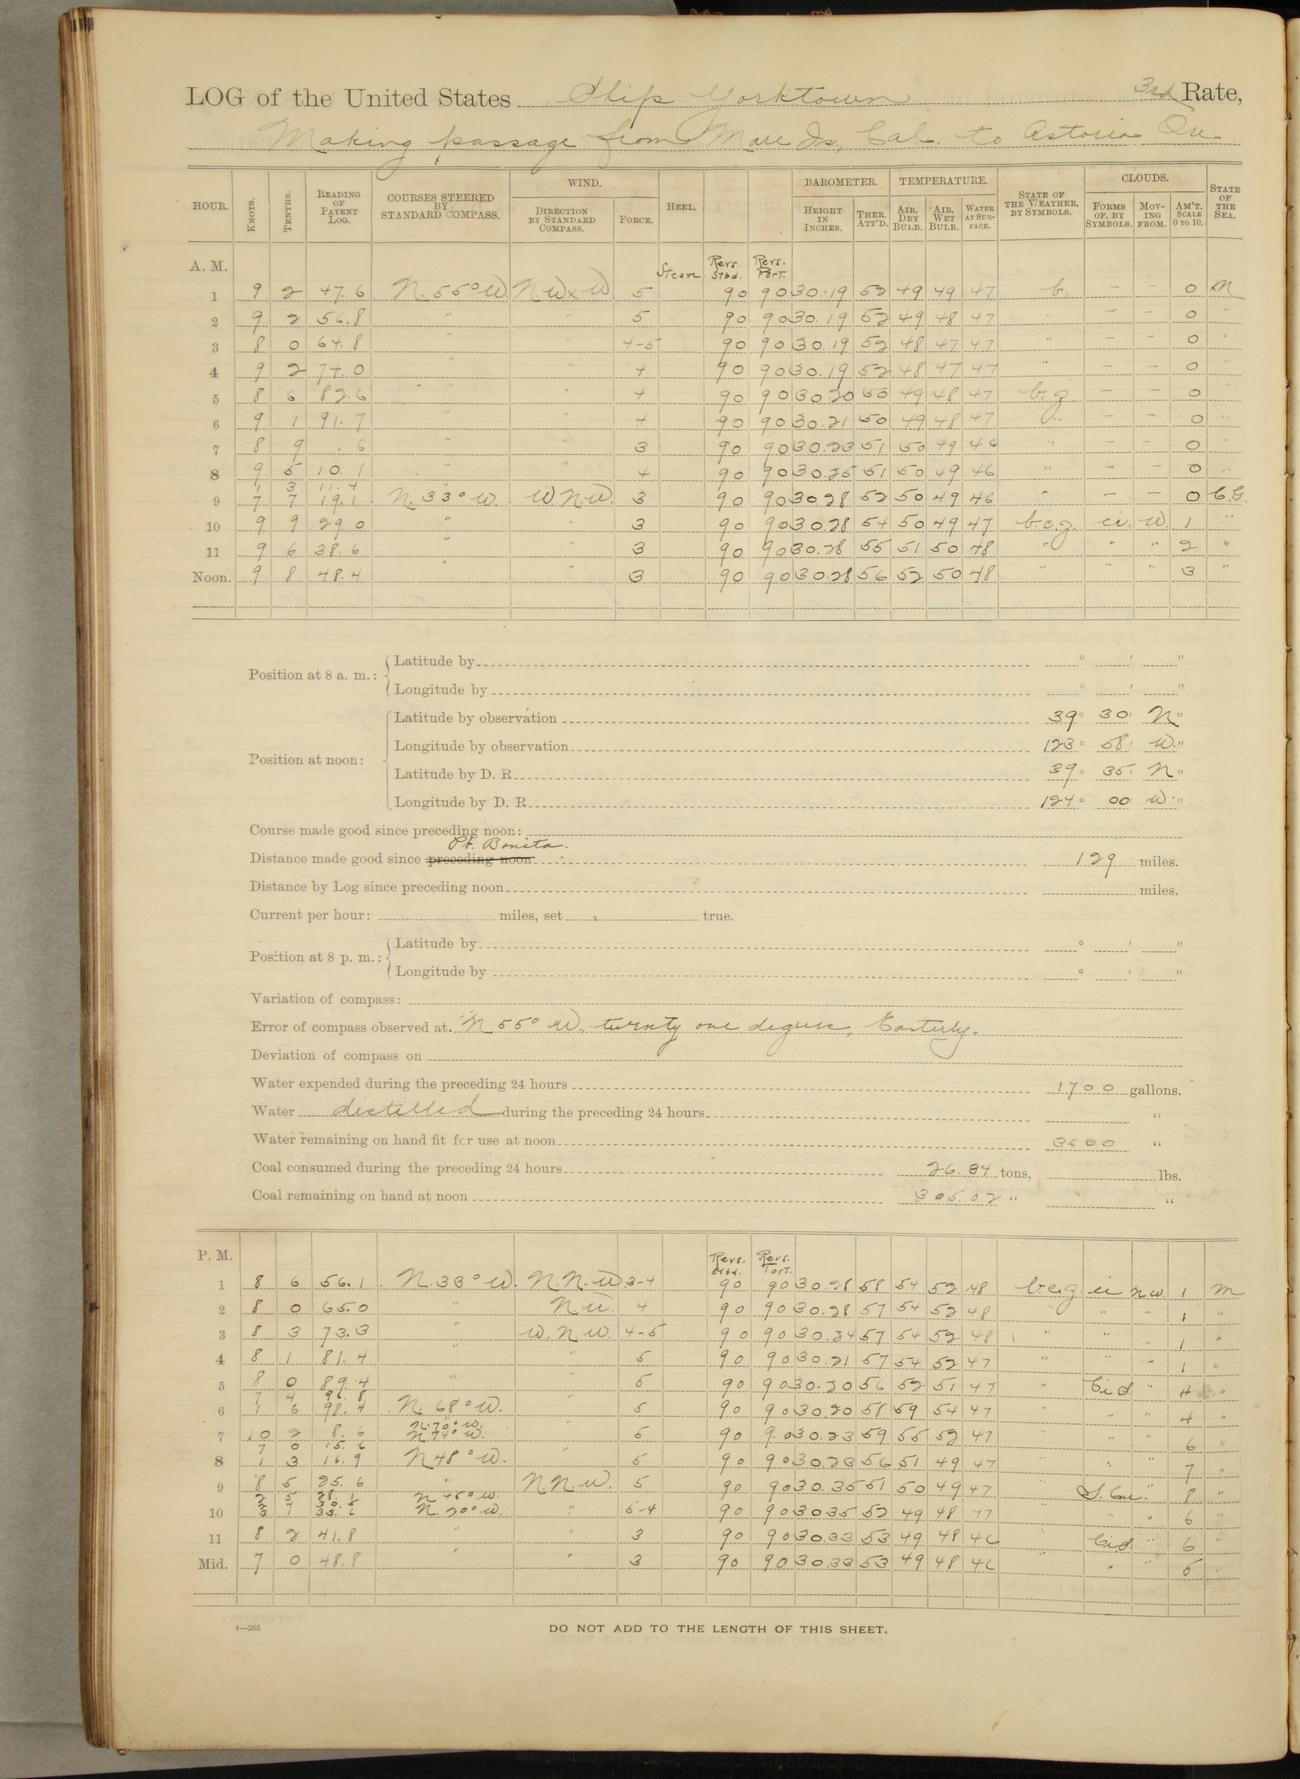 LOG of the United States Ship Yorktown 3rd Rate,
Making passage from Mare Is, Cal. to Astoria Ore
HOUR. KNOTS. TENTHS. READING OF PATENT LOG. COURSES STEERED BY STANDARD COMPASS. WIND. DIRECTION BY STANDARD COMPASS. FORCE. HEEL. BAROMETER. HEIGHT IN INCHES. THER. ATT'D. TEMPERATURE. AIR, DRY BULB. AIR, WET BULB. WATER AT SURFACE. STATE OF THE WEATHER, BY SYMBOLS. CLOUDS. FORMS OF, BY SYMBOLS. MOVING FROM. AM'T. SCALE 0 TO 10. STATE OF THE SEA.
A. M. Steam Revs. Stbd. Revs. Port.
1 9 2 47.6 N. 55° W N.W x W 5 90 90 30.19 52 49 49 47 b. — — 0 M
2 9 2 56.8 " " 5 90 90 30.19 52 49 48 47 " — — 0 "
3 8 0 64.8 " " 4-5 90 90 30.19 52 48 47 47 " — — 0 "
4 9 2 74.0 " " 4 90 90 30.19 52 48 47 47 " — — 0 "
5 8 6 82.6 " " 4 90 90 30.20 50 49 48 47 b.z — — 0 "
6 9 1 91.7 " " 4 90 90 30.21 50 49 48 47 " — — 0 "
7 8 9 .6 " " 3 90 90 30.23 51 50 49 46 " — — 0 "
8 9 5 10.1 " " 4 90 90 30.25 51 50 49 46 " — — 0 "
1 3 11.4
9 7 7 19.1 N. 33° W. W N.W. 3 90 90 30.28 52 50 49 46 " — — 0
10 9 9 29.0 " " 3 90 90 30.28 54 50 49 47 b.c.z. ci. W. 1 "
11 9 6 38.6 " " 3 90 90 30.28 55 51 50 48 " " " 2 "
Noon. 9 8 48.4 " " 3 90 90 30.28 56 52 50 48 " " " 3 "
Position at 8 a. m.: Latitude by ° ' "
Longitude by ° ' "
Position at noon: Latitude by observation 39° 30' N"
Longitude by observation 123° 58' W."
Latitude by D. R. 39° 35' N"
Longitude by D. R. 124° 00' W."
Course made good since preceding noon:
Pt. Bonita.
Distance made good since preceding noon 129 miles.
Distance by Log since preceding noon miles.
Current per hour: miles, set true.
Position at 8 p. m.: Latitude by ° ' "
Longitude by ° ' "
Variation of compass:
Error of compass observed at. N 55° W., twenty one degrees, Easterly.
Deviation of compass on
Water expended during the preceding 24 hours 1700 gallons.
Water distilled during the preceding 24 hours "
Water remaining on hand fit for use at noon "
Coal consumed during the preceding 24 hours 26.84 tons, lbs.
Coal remaining on hand at noon 305.02 " "
P. M. Revs. Stbd. Revs. Port.
1 8 6 56.1 N. 33° W. N. N. W. 3-4 90 90 30.28 58 54 52 48 b.c.z ci N W. 1 M
2 8 0 65.0 " N W. 4 90 90 30.28 57 54 52 48 " " " 1 "
3 8 3 73.3 " W. N W. 4-5 90 90 30.24 57 54 52 48 " " " 1 "
4 8 1 81.4 " " 5 90 90 30.21 57 54 52 47 " " " 1 "
5 8 0 89.4 " " 5 90 90 30.20 56 52 51 47 " " 4 "
7 4 96.8
6 1 6 98.4 N. 68° W. " 5 90 90 30.20 58 59 54 47 " " " 4 "
N. 70° W.
7 10 2 8.6 N 74° W. " 5 90 90 30.23 59 55 52 47 " " " 6 "
7 0 15.6
8 1 3 16.9 N 48° W. " 5 90 90 30.23 56 51 49 47 " " " 7 "
9 8 5 25.6 " N. N. W. 5 90 90 30.35 51 50 49 47 " S. Cu. " 8 "
2 5 28.1 N 45° W.
10 3 1 33.6 N. 20° W. " 5-4 90 90 30.35 52 49 48 47 " " " 6 "
11 8 2 41.8 " " 3 90 90 30.33 53 49 48 46 " " 6 "
Mid. 7 0 48.8 " " 3 90 90 30.33 53 49 48 46 " " " 5 "
4—265
DO NOT ADD TO THE LENGTH OF THIS SHEET.